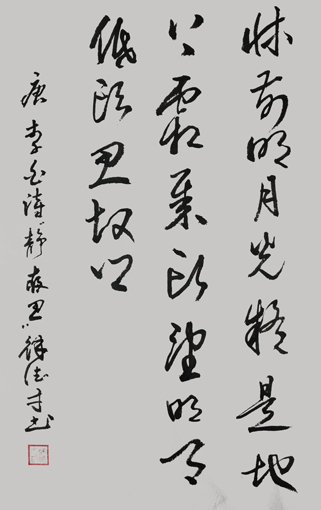 床前明月光疑是地
上霜举头望明月
低头思故乡
唐李白诗"静夜思"